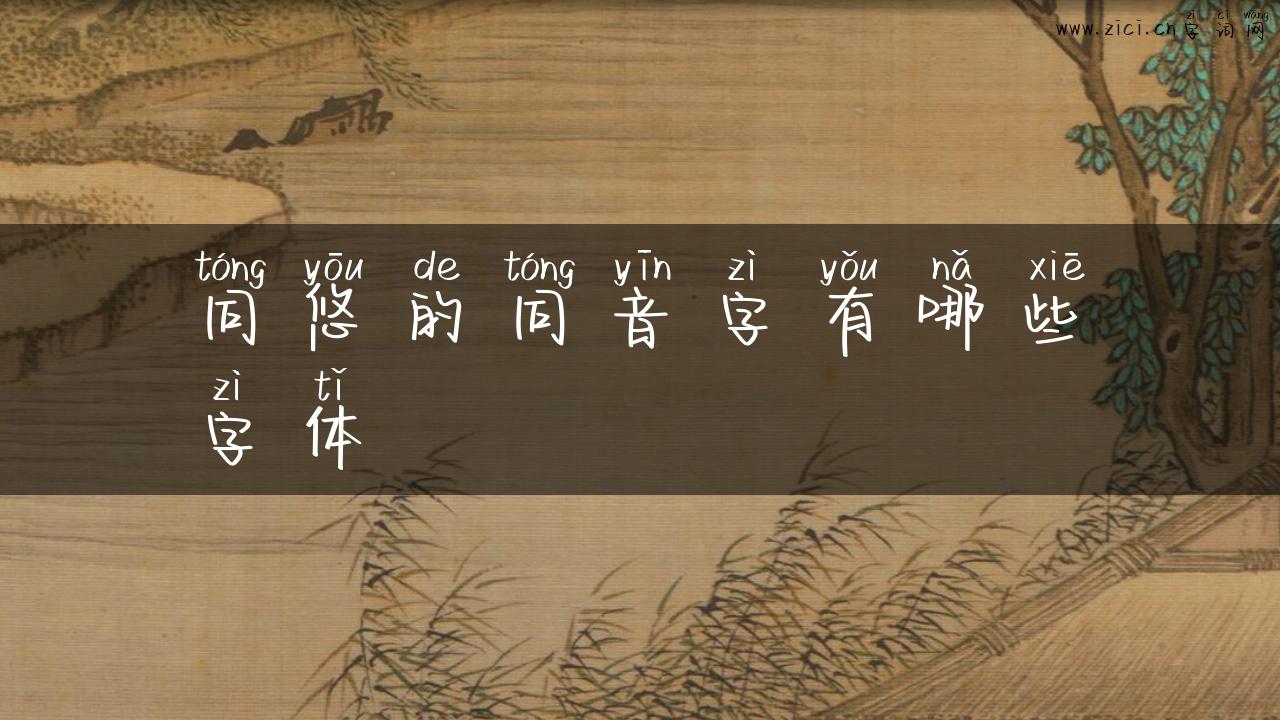 zì cí wǎng
www.zici.cn字词网
tóng yōu de tóng yīn zì yǒu nǎ xiē
同悠的同音字有哪些
zì tǐ
字体